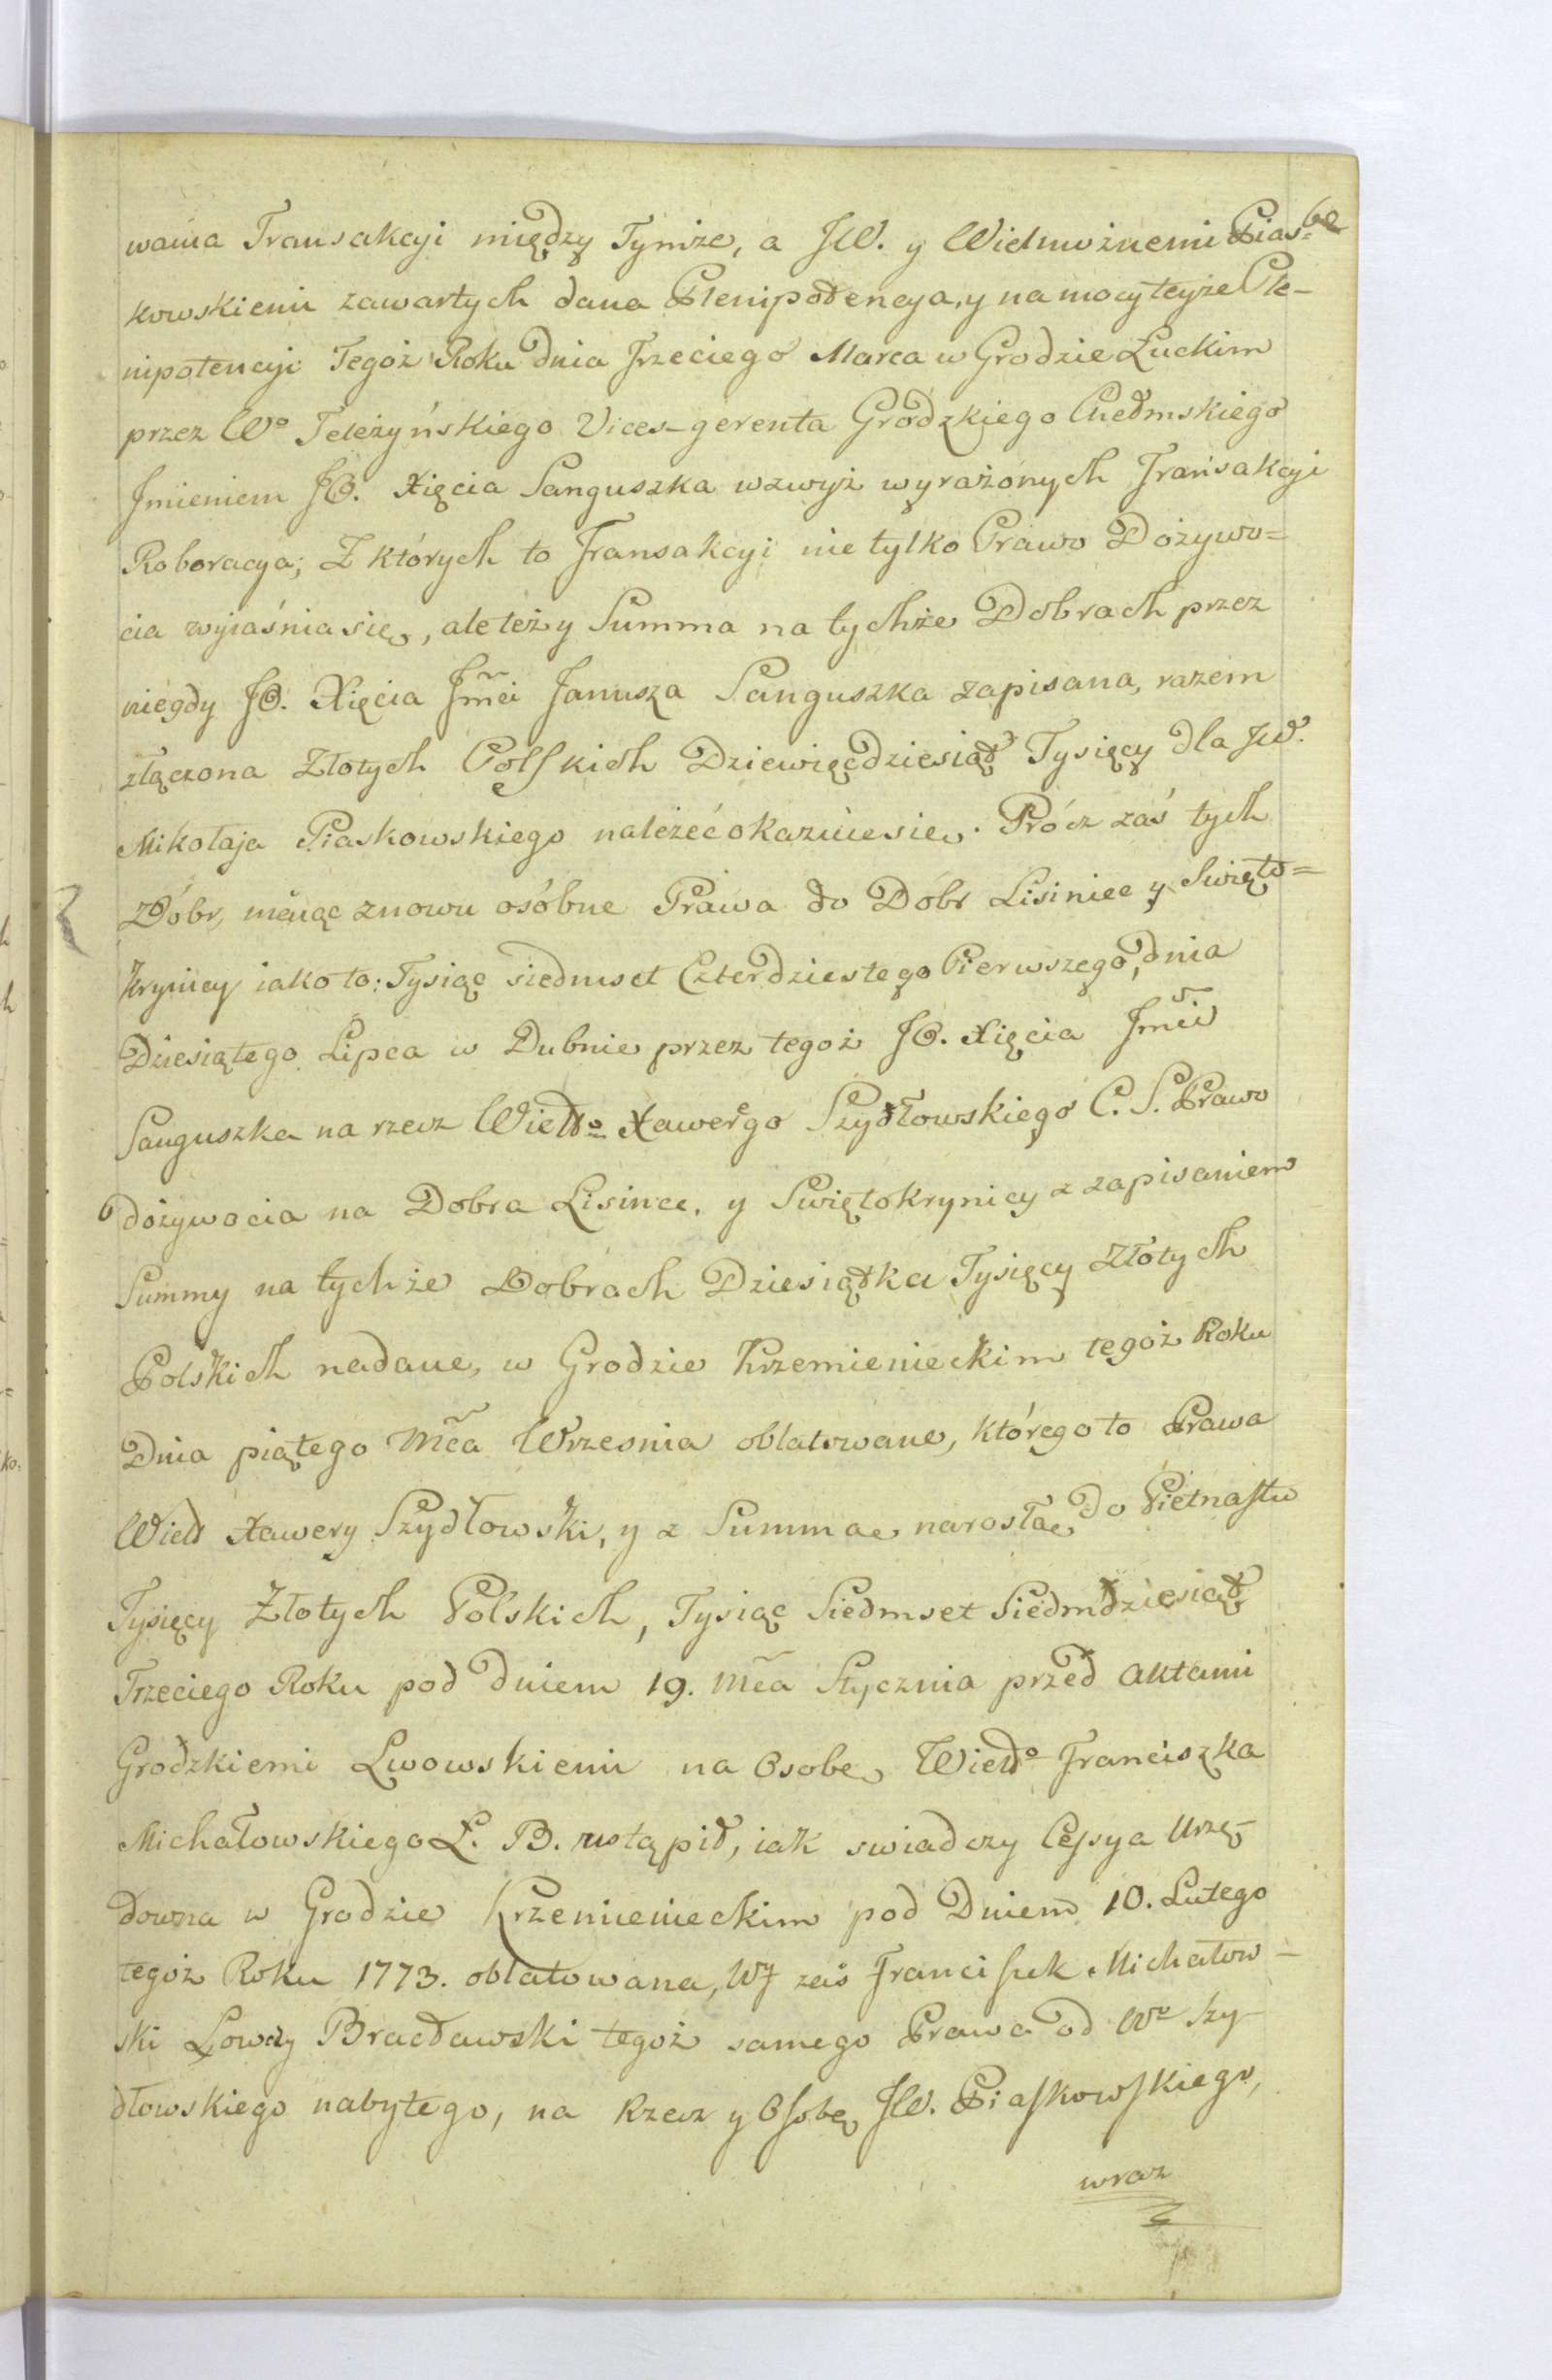 wania Transakcyi między Tymże, a JW. y Wielmożnemi Pias=
kowskiemi zawartych dana Plenipotencya, y na mocy teyże Ple-
nipotencyi Tegoż Roku dnia Trzeciego Marca w Grodzie Łuckim
przez Wo Teleżyńskiego Vices-gerenta Grodzkiego Chełmskiego
Jmieniem JO. Xięcia Sanguszka wzwyż wyrażonych Transakcyi
Roboracya; Z których to Transakcyi nie tylko Prawo Dożywo=
cia wyiaśnia się, ale też y Summa na tychże Dobrach przez
niegdy JO. Xięcia Jmci Janusza Sanguszka zapisana, razem
złączona Złotych Polskich Dziewięćdziesiąt Tysięcy dla JW.
Mikołaja Piaskowskiego należeć okazuie się. Prócz zaś tych
Dóbr, meiąc znowu osóbne Prawa do Dóbr Lisiniec y Swięto=
krynicy iako to: Tysiąc siedmset Czterdziestego Pierwszego, dnia
Dziesiątego Lipca w Dubnie przez tegoż JO. Xięcia Jmci
Sanguszka na rzecz Wielo Xawergo Szydłowskiego C. S. Prawo
dożywocia na Dobra Lisince, y Swiętokrynicy z zapisaniem
Summy na tychże Dobrach Dziesiątka Tysięcy Złotych
Polskich nadane, w Grodzie Krzemienieckim tegoż Roku
Dnia piątego Mca Wrzesnia oblatowane, którego to Prawa
Wiel Xawery Szydłowski, y z Summae narosłae do Pietnastu
Tysięcy Złotych Polskich, Tysiąc Siedmset Siedmdziesiąt
Trzeciego Roku pod Dniem 19. Mca Stycznia przed Aktami
Grodzkiemi Lwowskiemi na Osobę Wielo Franciszka
Michałowskiego Ł. B. ustąpił, iak swiadczy Cessya Urzę-
downa w Grodzie Krzemienieckim pod Dniem 10. Lutego
tegoż Roku 1773. oblatowana, WJ zaś Franciszek Michałow-
ski Łowczy Bracławski tegoż samego Prawa od Wo Szy-
dłowskiego nabytego, na Rzecz y Osobę JW. Piaskowskiego,
wraz